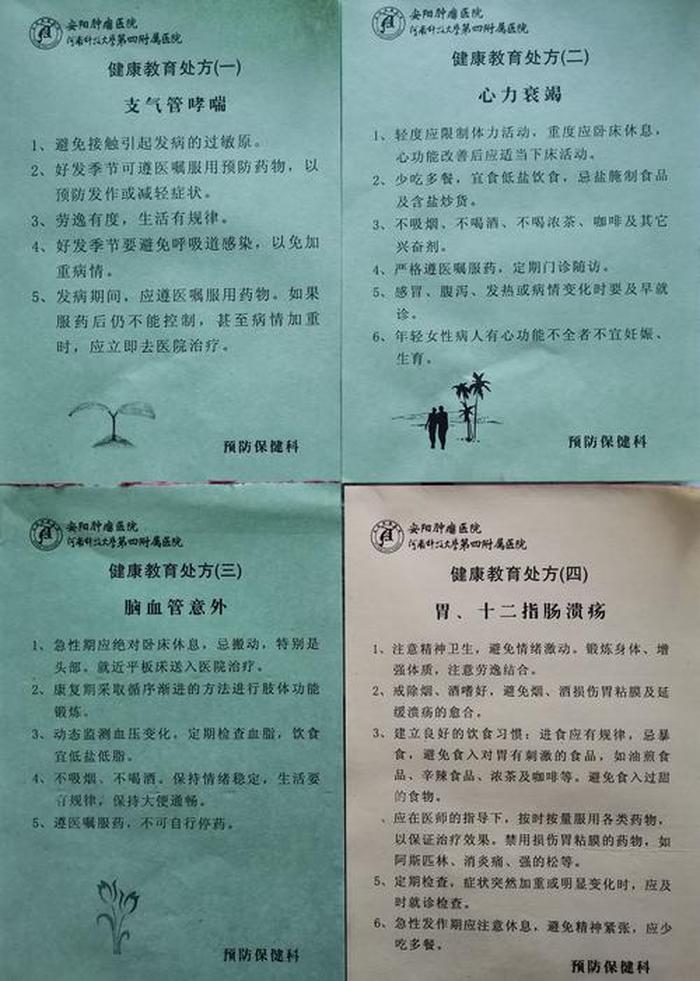 安阳肿瘤医院
河南科技大学第四附属医院
健康教育处方(一)
支气管哮喘
1、避免接触引起发病的过敏原。
2、好发季节可遵医嘱服用预防药物，以
预防发作或减轻症状。
3、劳逸有度，生活有规律。
4、好发季节要避免呼吸道感染，以免加
重病情。
5、发病期间，应遵医嘱服用药物。如果
服药后仍不能控制，甚至病情加重
时，应立即去医院治疗。
预防保健科
安阳肿瘤医院
河南科技大学第四附属医院
健康教育处方(二)
心力衰竭
1、轻度应限制体力活动，重度应卧床休息，
心功能改善后应适当下床活动。
2、少吃多餐，宜食低盐饮食，忌盐腌制食品
及含盐炒货。
3、不吸烟、不喝酒、不喝浓茶、咖啡及其它
兴奋剂。
4、严格遵医嘱服药，定期门诊随访。
5、感冒、腹泻、发热或病情变化时要及早就
诊。
6、年轻女性病人有心功能不全者不宜妊娠、
生育。
预防保健科
安阳肿瘤医院
河南科技大学第四附属医院
健康教育处方(三)
脑血管意外
1、急性期应绝对卧床休息，忌搬动，特别是
头部。就近平板床送入医院治疗。
2、康复期采取循序渐进的方法进行肢体功能
锻炼。
3、动态监测血压变化，定期检查血脂，饮食
宜低盐低脂。
4、不吸烟、不喝酒。保持情绪稳定，生活要
有规律，保持大便通畅。
5、遵医嘱服药，不可自行停药。
预防保健科
安阳肿瘤医院
河南科技大学第四附属医院
健康教育处方(四)
胃、十二指肠溃疡
1、注意精神卫生，避免情绪激动。锻炼身体、增
强体质，注意劳逸结合。
2、戒除烟、酒嗜好，避免烟、酒损伤胃粘膜及延
缓溃疡的愈合。
3、建立良好的饮食习惯：进食应有规律，忌暴
食，避免食入对胃有刺激的食品，如油煎食
品、辛辣食品、浓茶及咖啡等。避免食入过甜
的食物。
、应在医师的指导下，按时按量服用各类药物，
以保证治疗效果。禁用损伤胃粘膜的药物，如
阿斯匹林、消炎痛、强的松等。
5、定期检查，症状突然加重或明显变化时，应及
时就诊检查。
6、急性发作期应注意休息，避免精神紧张，应少
吃多餐。
预防保健科